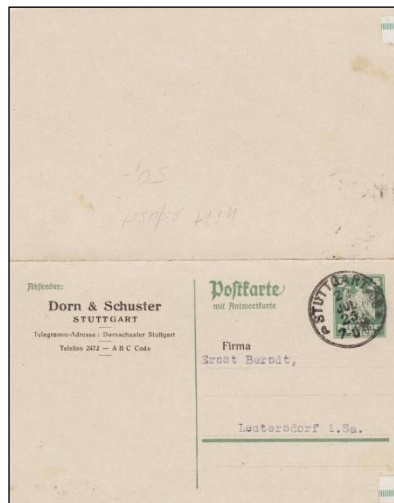 Absender:
Dorn & Schuster
STUTTGART
Telegramm-Adresse: Dornschuster Stuttgart
Telefon 2472 — A B C Code
Postkarte
mit Antwortkarte
STUTTGART
JUL
25
Firma
Ernst Berndt,
Leutersdorf i.Sa.